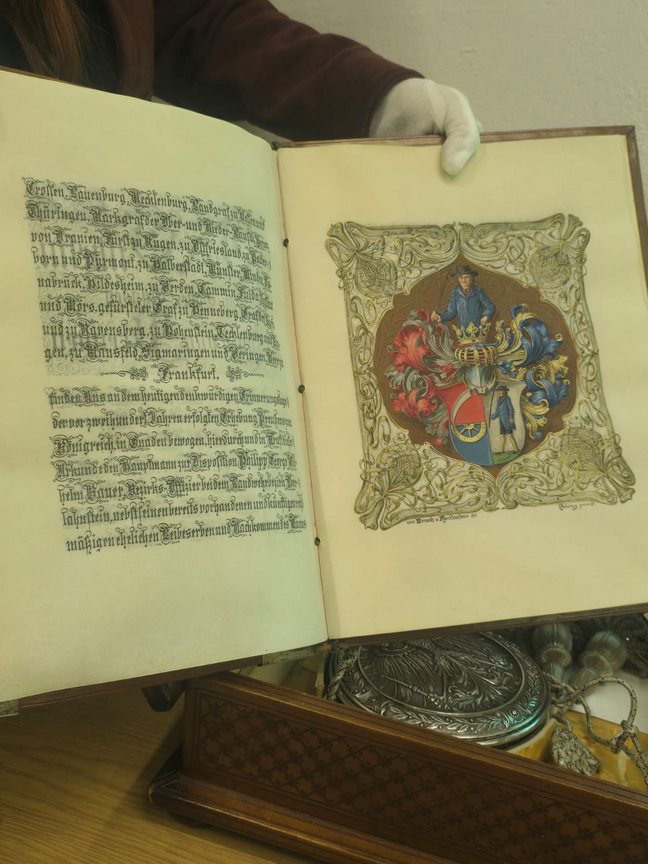 Crossen, Lauenburg, Mecklenburg, Landgraf zu Hessen und
Thüringen, Markgraf der Ober- und Nieder-Lausitz, Prinz
von Oranien, Fürst zu Rügen, zu Ostfriesland, zu Pader-
born und Pyrmont, zu Halberstadt, Münster, Minden, Os-
nabrück, Hildesheim, zu Verden, Cammin, Fulda, Nassau
und Mörs, gefürsteter Graf zu Henneberg, Graf der Mark
und zu Ravensberg, zu Hohenstein, Tecklenburg und Lin-
gen, zu Mansfeld, Sigmaringen und Veringen, Herr zu
Frankfurt.
finden Uns an dem heutigen denkwürdigen Erinnerungstage
der vor zweihundert Jahren erfolgten Erhebung Preußens zum
Königreich, in Gnaden bewogen, hierdurch und in Kraft dieser
Urkunde den Hauptmann zur Disposition Philipp Georg Wil-
helm Bauer, Bezirks-Offizier bei dem Landwehrbezirk Ober-
lahnstein, nebst seinen bereits vorhandenen und künftigen recht-
mäßigen ehelichen Leibeserben und Nachkommen des Mannes-